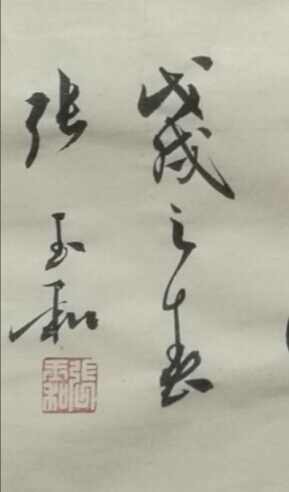 戊戌之春
张玉和
张玉和